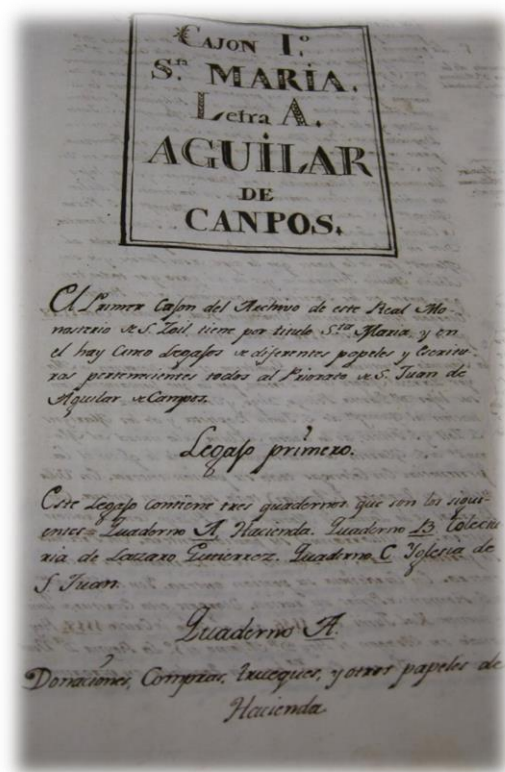 CAJON I.º
S.ta MARIA.
Letra A.
AGUILAR
DE
CANPOS.
El Primer Cajon del Archivo de este Real Mo-
nasterio de S. Zoil tiene por titulo S.ta Maria, y en
el hay Cinco Legajos de diferentes papeles y Escritu-
ras pertenecientes todos al Priorato de S. Juan de
Aguilar de Campos.
Legajo primero.
Este Legajo contiene tres quadernos que son los sigui-
entes Quaderno A. Hacienda. Quaderno B Colectu-
ria de Lazaro Gutierrez. Quaderno C Iglesia de
S. Juan.
Quaderno A.
Donaciones, Compras, trueques, y otros papeles de
Hacienda